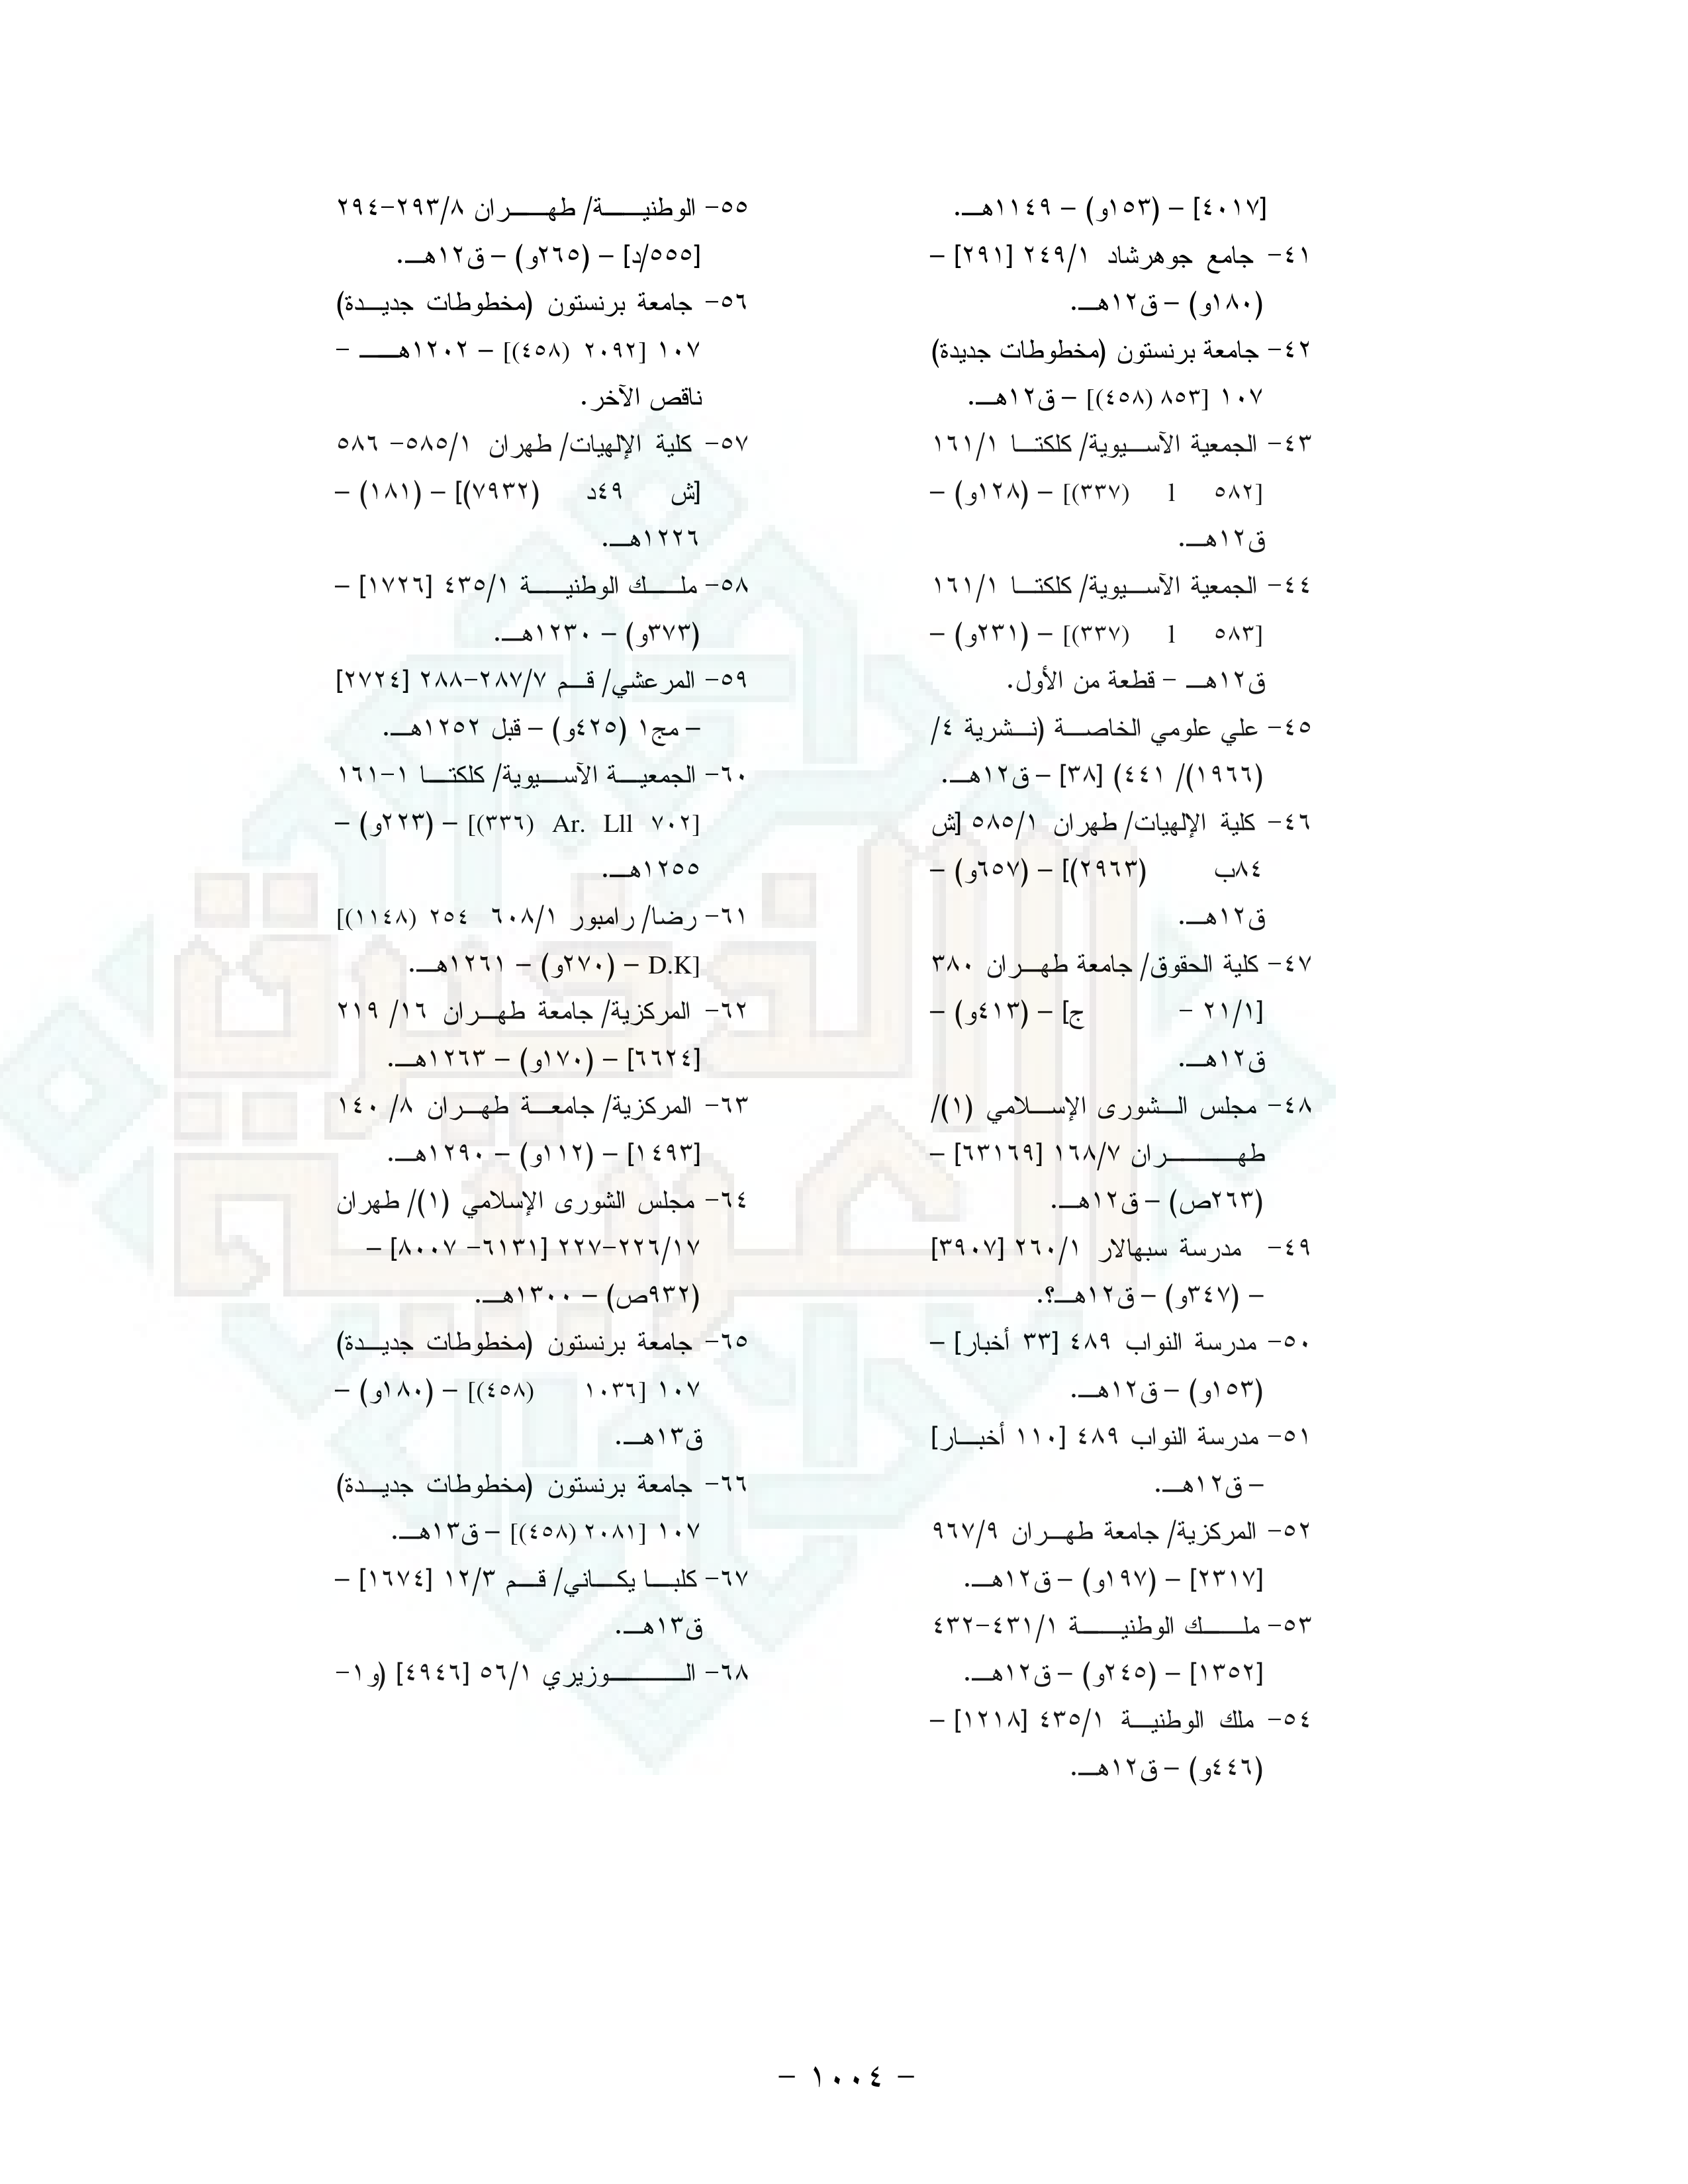 [٤٠١٧] – (١٥٣و) – ١١٤٩هـ.
٤١- جامع جوهرشاد ٢٤٩/١ [٢٩١] –
(١٨٠و) – ق١٢هـ.
٤٢- جامعة برنستون (مخطوطات جديدة)
١٠٧ [٨٥٣ (٤٥٨)] – ق١٢هـ.
٤٣- الجمعية الآسيوية/ كلكتا ١٦١/١
[٥٨٢ l (٣٣٧)] – (١٢٨و) –
ق١٢هـ.
٤٤- الجمعية الآسيوية/ كلكتا ١٦١/١
[٥٨٣ l (٣٣٧)] – (٢٣١و) –
ق١٢هـ – قطعة من الأول.
٤٥- علي علومي الخاصة (نشرية ٤/
(١٩٦٦)/ ٤٤١) [٣٨] – ق١٢هـ.
٤٦- كلية الإلهيات/ طهران ٥٨٥/١ [ش
٨٤ب (٢٩٦٣)] – (٦٥٧و) –
ق١٢هـ.
٤٧- كلية الحقوق/ جامعة طهران ٣٨٠
[٢١/١ – ج] – (٤١٣و) –
ق١٢هـ.
٤٨- مجلس الشورى الإسلامي (١)/
طهران ١٦٨/٧ [٦٣١٦٩] –
(٢٦٣ص) – ق١٢هـ.
٤٩- مدرسة سبهالار ٢٦٠/١ [٣٩٠٧]
– (٣٤٧و) – ق١٢هـ؟.
٥٠- مدرسة النواب ٤٨٩ [٣٣ أخبار] –
(١٥٣و) – ق١٢هـ.
٥١- مدرسة النواب ٤٨٩ [١١٠ أخبار]
– ق١٢هـ.
٥٢- المركزية/ جامعة طهران ٩٦٧/٩
[٢٣١٧] – (١٩٧و) – ق١٢هـ.
٥٣- ملك الوطنية ٤٣١/١-٤٣٢
[١٣٥٢] – (٢٤٥و) – ق١٢هـ.
٥٤- ملك الوطنية ٤٣٥/١ [١٢١٨] –
(٤٤٦و) – ق١٢هـ.
٥٥- الوطنية/ طهران ٢٩٣/٨-٢٩٤
[٥٥٥/د] – (٢٦٥و) – ق١٢هـ.
٥٦- جامعة برنستون (مخطوطات جديدة)
١٠٧ [٢٠٩٢ (٤٥٨)] – ١٢٠٢هـ –
ناقص الآخر.
٥٧- كلية الإلهيات/ طهران ٥٨٥/١- ٥٨٦
[ش ٤٩د (٧٩٣٢)] – (١٨١) –
١٢٢٦هـ.
٥٨- ملك الوطنية ٤٣٥/١ [١٧٢٦] –
(٣٧٣و) – ١٢٣٠هـ.
٥٩- المرعشي/ قم ٢٨٧/٧-٢٨٨ [٢٧٢٤]
– مج١ (٤٢٥و) – قبل ١٢٥٢هـ.
٦٠- الجمعية الآسيوية/ كلكتا ١-١٦١
[٧٠٢ Ar. Lll (٣٣٦)] – (٢٢٣و) –
١٢٥٥هـ.
٦١- رضا/ رامبور ٦٠٨/١ ٢٥٤ (١١٤٨)]
D.K] – (٢٧٠و) – ١٢٦١هـ.
٦٢- المركزية/ جامعة طهران ١٦/ ٢١٩
[٦٦٢٤] – (١٧٠و) – ١٢٦٣هـ.
٦٣- المركزية/ جامعة طهران ٨/ ١٤٠
[١٤٩٣] – (١١٢و) – ١٢٩٠هـ.
٦٤- مجلس الشورى الإسلامي (١)/ طهران
٢٢٦/١٧-٢٢٧ [٦١٣١- ٨٠٠٧] –
(٩٣٢ص) – ١٣٠٠هـ.
٦٥- جامعة برنستون (مخطوطات جديدة)
١٠٧ [١٠٣٦ (٤٥٨)] – (١٨٠و) –
ق١٣هـ.
٦٦- جامعة برنستون (مخطوطات جديدة)
١٠٧ [٢٠٨١ (٤٥٨)] – ق١٣هـ.
٦٧- كلبا يكاني/ قم ١٢/٣ [١٦٧٤] –
ق١٣هـ.
٦٨- الوزيري ٥٦/١ [٤٩٤٦] (و١-
– ١٠٠٤ –